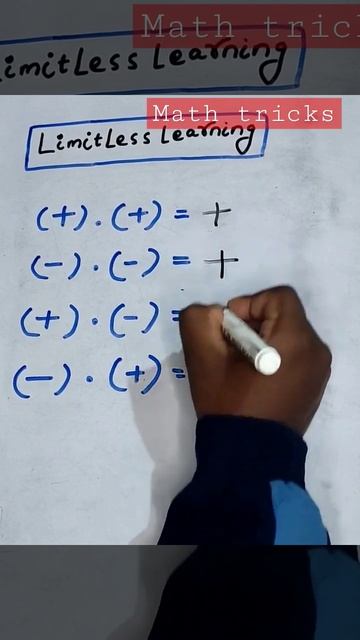 Math tric
imitLess Learning
Math tricks
LimitLess Learning
(+) . (+) = +
(-) . (-) = +
(+) . (-) =
(-) . (+) =